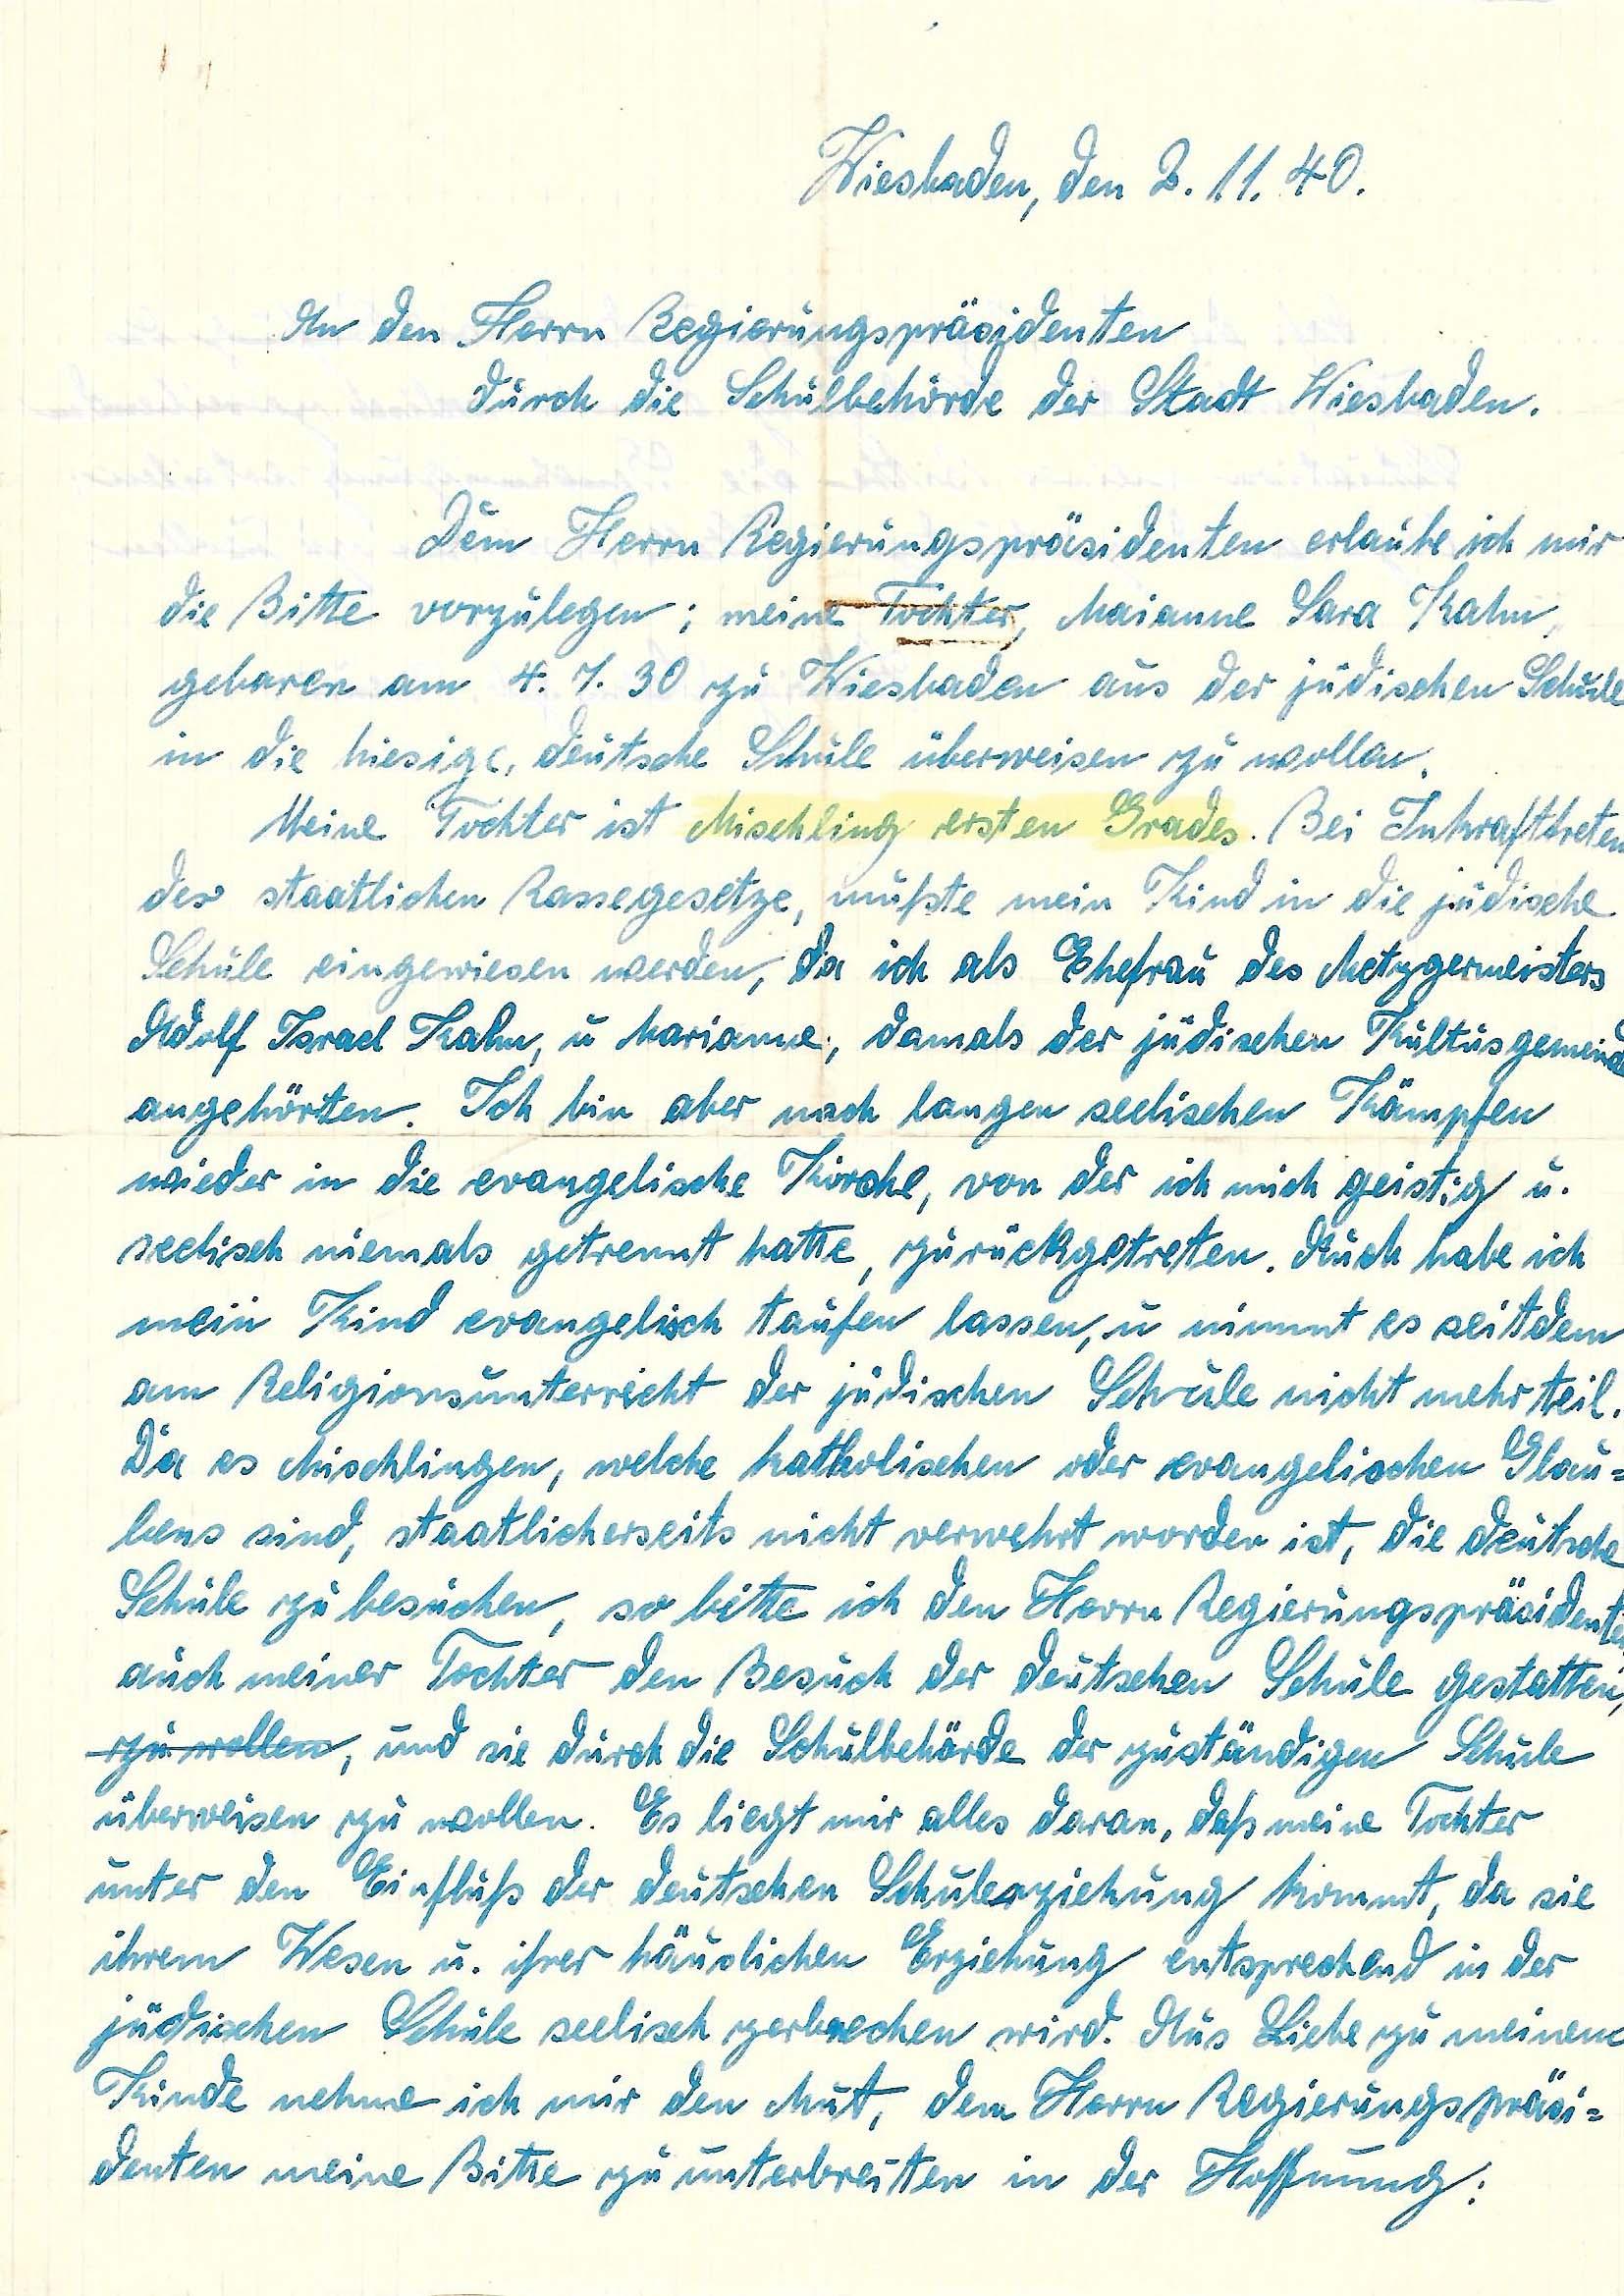 Wiesbaden, den 2. 11. 40.
An den Herrn Regierungspräsidenten
durch die Schulbehörde der Stadt Wiesbaden.
Dem Herrn Regierungspräsidenten erlaube ich mir
die Bitte vorzulegen; meine Tochter, Maianne Sara Kahn,
geboren am 4. 7. 30 zu Wiesbaden aus der jüdischen Schule
in die hiesige, deutsche Schule überweisen zu wollen.
Meine Tochter ist Mischling ersten Grades. Bei Inkrafttreten
des staatlichen Rassegesetze, mußte mein Kind in die jüdische
Schule eingewiesen werden, da ich als Ehefrau des Metzgermeisters
Adolf Israel Kahn, u Marianne, damals der jüdischen Kultusgemeinde
angehörten. Ich bin aber nach langen seelischen Kämpfen
wieder in die evangelische Kirche, von der ich mich geistig u.
seelisch niemals getrennt hatte, zurückgetreten. Auch habe ich
mein Kind evangelisch taufen lassen, u nimmt es seitdem
am Religionsunterricht der jüdischen Schule nicht mehr teil.
Da es Mischlingen, welche katholischen oder evangelischen Glau=
bens sind, staatlicherseits nicht verwehrt worden ist, die deutsche
Schule zu besuchen, so bitte ich den Herrn Regierungspräsidenten
auch meiner Tochter den Besuch der deutschen Schule gestatten,
zu wollen, und sie durch die Schulbehörde der zuständigen Schule
überweisen zu wollen. Es liegt mir alles daran, daß meine Tochter
unter den Einfluß der deutschen Schulerziehung kommt, da sie
ihrem Wesen u. ihrer häuslichen Erziehung entsprechend in der
jüdischen Schule seelisch zerbrechen wird. Aus Liebe zu meinem
Kinde nehme ich mir den Mut, dem Herrn Regierungspräsi=
denten meine Bitte zu unterbreiten in der Hoffnung: